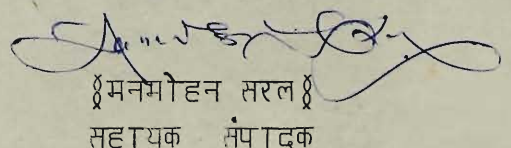 ॥मनमोहन सरल॥
सहायक संपादक